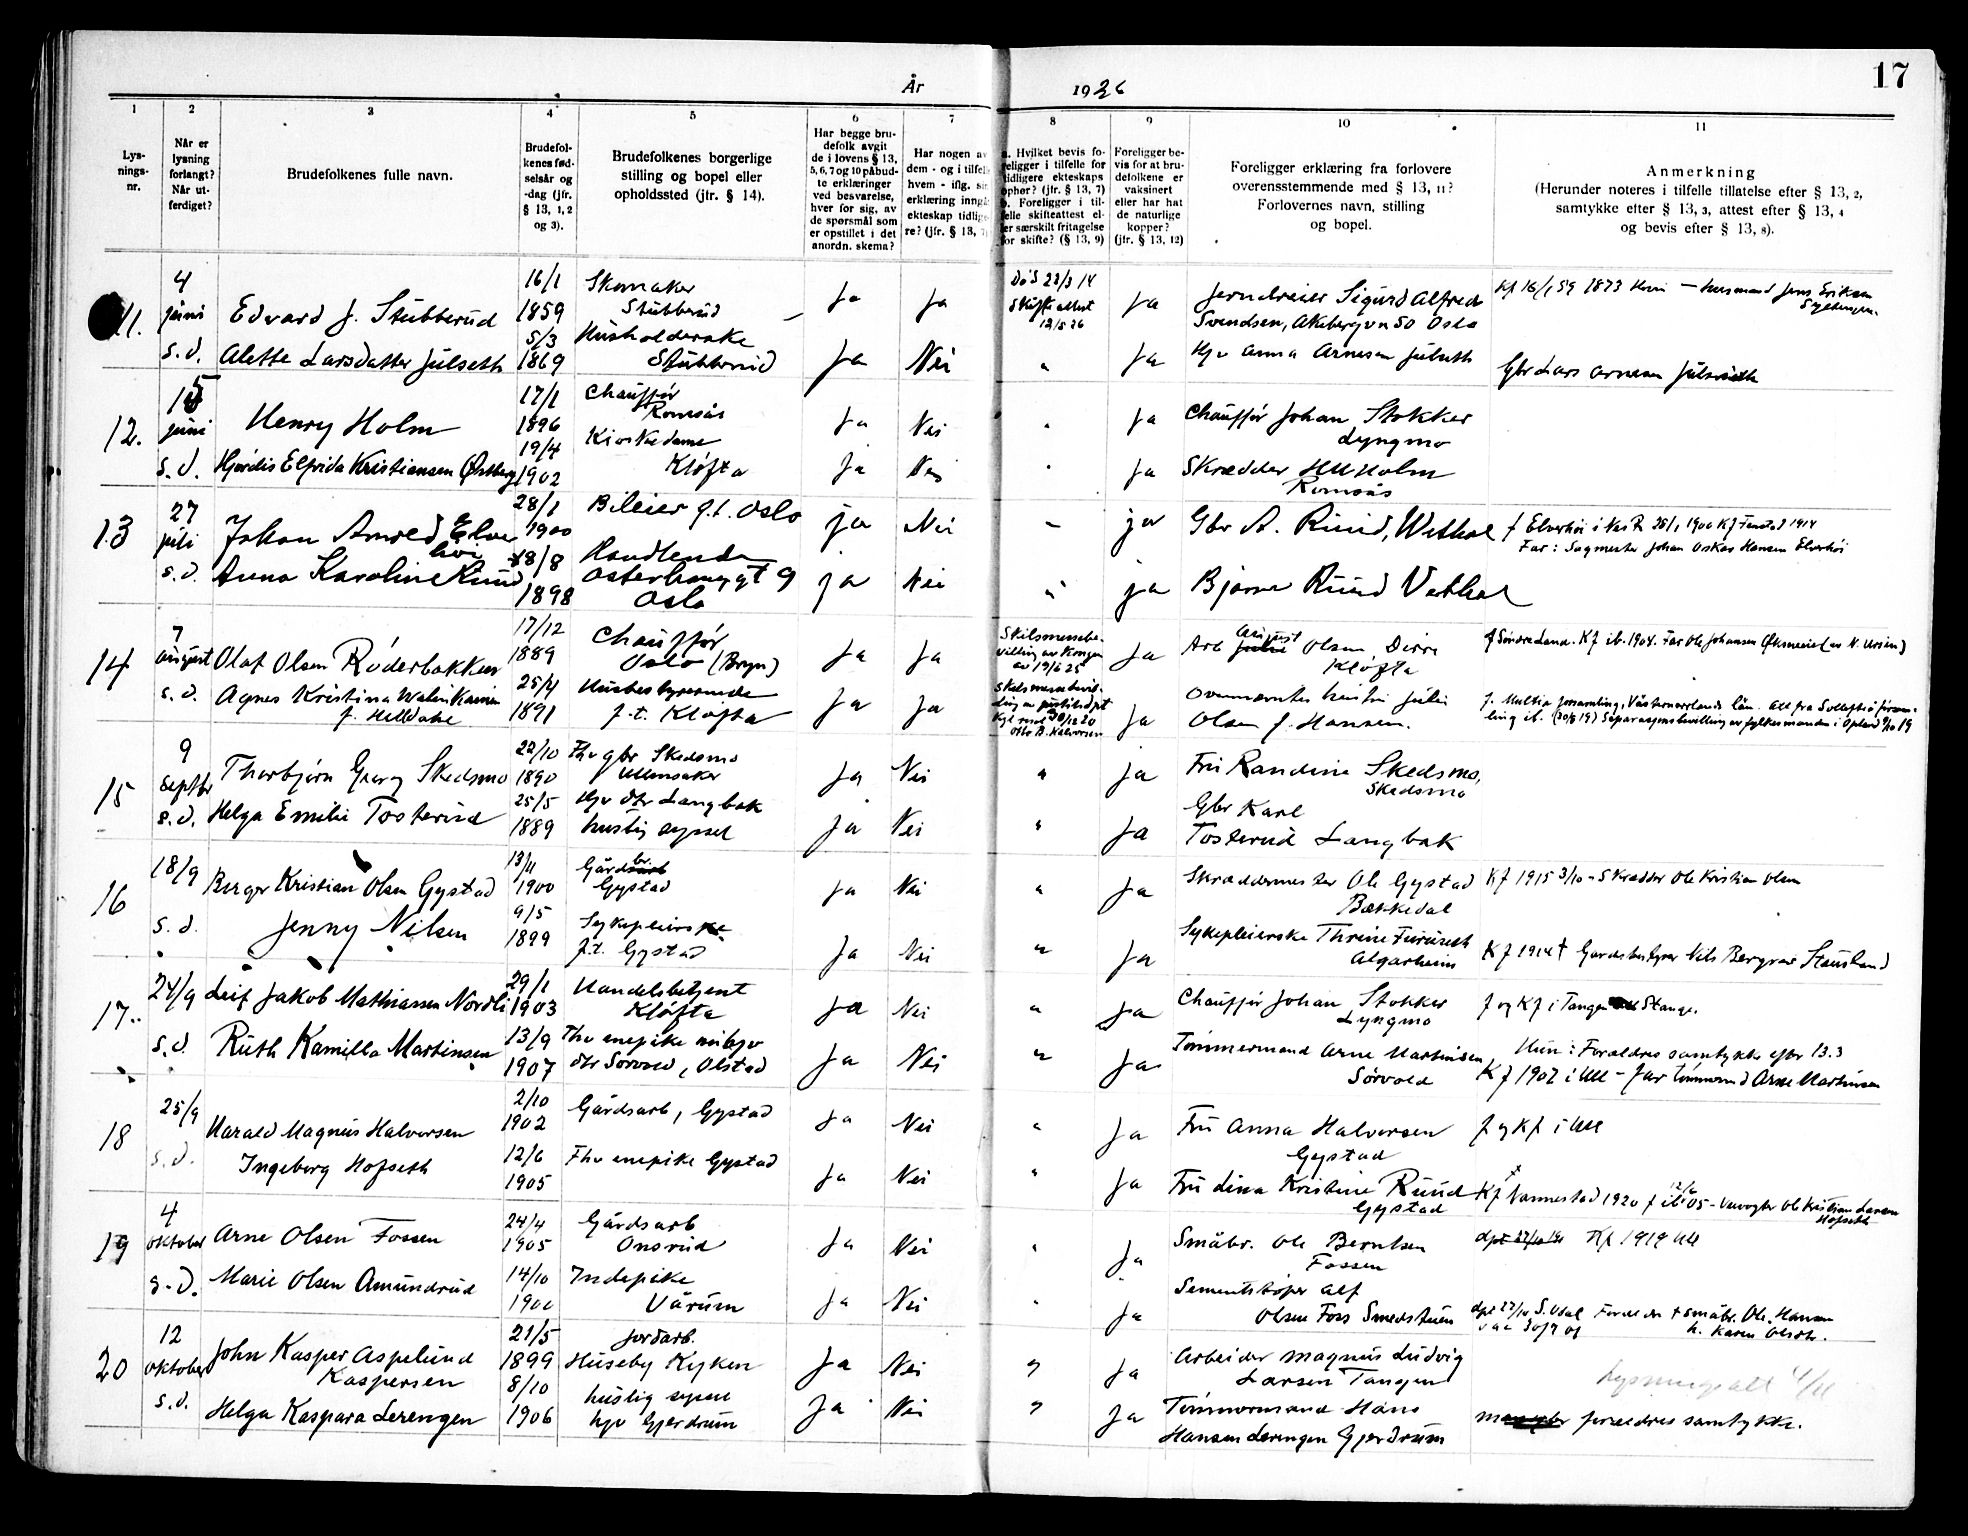 17
År 1926
1 2 3 4 5 6 7 8 9 10 11
Lys-
nings-
nr.
Når er
lysning
forlangt?
Når ut-
ferdiget?
Brudefolkenes fulle navn.
Brudefol-
kenes fød-
selsår og
-dag (jfr.
§ 13, 1, 2
og 3).
Brudefolkenes borgerlige
stilling og bopel eller
opholdssted (jfr. § 14).
Har begge bru-
defolk avgit
de i lovens § 13,
5, 6, 7 og 10 påbud-
te erklæringer
ved besvarelse,
hver for sig, av
de spørsmål som
er opstillet i det
anordn. skema?
Har nogen av
dem - og i tilfelle
hvem - iflg. sin
erklæring inngå
ekteskap tidlige
re? (jfr. § 13, 7)
a. Hvilket bevis fo-
religger i tilfelle for
tidligere ekteskaps
ophør? (jfr. § 13, 7)
b. Foreligger i til-
felle skifteattest el-
ler særskilt fritagelse
for skifte? (§ 13, 9)
Foreligger be-
vis for at bru-
defolkene er
vaksinert
eller har hat
de naturlige
kopper?
(jfr. § 13, 12)
Foreligger erklæring fra forlovere
overensstemmende med § 13, 11?
Forlovernes navn, stilling
og bopel.
Anmerkning
(Herunder noteres i tilfelle tillatelse efter § 13, 2,
samtykke efter § 13, 3, attest efter § 13, 4
og bevis efter § 13, 8).
11.
4
juni
s.d.
Edvard J. Stubberud
Alette Larsdatter Julseth
16/1
1859
5/3
1869
Skomaker
Stubberud
Husholderske
Stubberud
Ja
Ja
Ja
Nei
Døds 22/3 14
Skifteattest
12/5 26
"
Ja
Ja
Jerndreier Sigurd Alfred
Svendsen, Akebergvn 50 Oslo
Hjv Anna Arnesen Julseth
Kf 16/1 59 1873 Hurdal — husmand Jens Eriksen
Gbr Lars Arnesen Julseth
12.
15
juni
s.d.
Henry Holm
Hjørdis Elfrida Kristiansen Østberg
17/1
1896
19/4
1902
Chauffør
Romsås
Kioskedame
Kløfta
Ja
Ja
Nei
Nei
"
"
Ja
Ja
Chauffør Johan Stokker
Lyngmo
Skrædder H M Holm
Romsås
13
27
juli
s.d.
Johan Arnold Elver
høi
Anna Karoline Ruud
28/1
1900
18/8
1898
Bileier f.t. Oslo
Handlende
Osterhausgt 9
Oslo
ja
ja
Nei
Nei
"
"
ja
ja
Gbr A. Ruud, Wethal
Bjarne Ruud Vethal
f Elverhøi i Nes R 28/1 1900 Kf Fenstad 1914
Far: Sagmester Johan Oskar Hansen Elverhøi
14
7
august
s.d.
Olaf Olsen Røderbakken
Agnes Kristina Walin Karin
f. Helldahl
17/12
1889
25/4
1891
Chauffør
Oslo (Bryn)
Husbestyrerinde
f.t. Kløfta
Ja
Ja
Ja
Ja
Skilsmissebe-
villing av Kongen
av 19/6 25
Skilsmissebevil-
ling av justitsdept
Kgl resol 30/12 20
Otto B. Halvorsen
Ja
Ja
Arb august Olsen, Dirre
Kløfta
Ovennævntes hustru Julie
Olsen f. Hansen.
f Søndre Land. Kf ib. 1904. Far Ole Johansen
f. Multra forsamling, Västernorrlands län. Att fra Sollefteå försam-
ling ib. (30/8 19) Separasjonsbevilling av fylkesmanden i Opland 9/10 19
15
9
Septbr
s.d.
Thorbjørn Georg Skedsmo
Helga Emilie Tosterud
22/10
1890
25/5
1889
Fhv gbr Skedsmo
Ullensaker
Hjv dtr Langbak
huslig syssel
Ja
Ja
Nei
Nei
"
"
Ja
Ja
Fru Randine Skedsmo,
Skedsmo
Gbr Karl
Tosterud Langbak
16
18/9
s.d.
Berger Kristian Olsen Gystad
Jenny Nilsen
13/11
1900
9/5
1899
Gårdbr.
Gystad
Sykepleierske
f.t. Gystad
Ja
Ja
Nei
Nei
"
"
Ja
Ja
Skreddermester Ole Gystad
Bakkedal
Sykepleierske Thrine Furuseth
Algarheim
Kf 1915 3/10 - Skredder Ole Kristian Olsen
Kf 1914 † Gardsbestyrer Nils Bergvar Stausland
17.
24/9
s.d.
Leif Jakob Mathiassen Nordli
Ruth Kamilla Martinsen
29/1
1903
13/9
1907
Handelsbetjent
Kløfta
Fhv enepike m hjv
dtr Sørvold, Olstad
Ja
Ja
Nei
Nei
"
"
Ja
Ja
Chauffør Johan Stokker
Lyngmo
Tømmermand Arne Martinsen
Sørvold
f og Kf i Tangen Stange.
Hun: Forældres samtykke efter 13.3
Kf 1907 i Ull - far tømmermd Arne Martinsen
18
25/9
s.d.
Harald Magnus Halvorsen
Ingeborg Hofseth
2/10
1902
12/6
1905
Gårdsarb, Gystad
Fhv enepike Gystad
Ja
Ja
Nei
Nei
"
"
Ja
Ja
Fru Anna Halvorsen
Gystad
Fru Lina Kristine Ruud
Gystad
f og Kf i Ull
Kf Nannestad 1920 f ib 12/6 05 - Veivogter Ole Kristian Larsen
Hofseth
19
4
oktober
s.d.
Arne Olsen Fossen
Marie Olsen Amundrud
24/4
1905
14/10
1900
Gårdsarb
Onsrud
Indepike
Vårum
Ja
Ja
Nei
Nei
"
"
Ja
Ja
Småbr. Ole Berntsen
Fossen
Sementstøper Alf
Olsen Foss Smedstuen
Kf 1919 Ull
dpt 22/10 S. Odal Foreldre † småbr. Ole Hansen
h. Karen Olsdtr.
20
12
oktober
s.d.
John Kasper Aspelund
Kaspersen
Helga Kaspara Lerengen
21/5
1899
8/10
1906
Jordarb.
Huseby Kyken
huslig syssel
hjv Gjerdrum
Ja
Ja
Nei
Nei
"
"
Ja
Ja
Arbeider Magnus Ludvig
Larsen Tangen
Tømmermand Hans
Hansen Lerengen Gjerdrum
Lysningsatt 4/11
forældres samtykke.